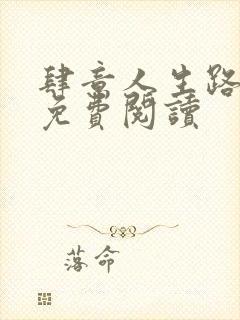 肆意人生路
免費閱讀
落命